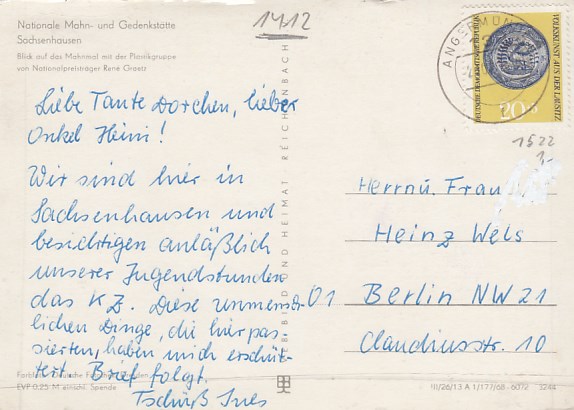 Nationale Mahn- und Gedenkstätte
Sachsenhausen
Blick auf das Mahnmal mit der Plastikgruppe
von Nationalpreisträger René Graetz
1412
Liebe Tante Dorchen, lieber
Onkel Heini!
Wir sind hier in
Sachsenhausen und
besichtigen anläßlich
unserer Jugendstunden
das KZ. Diese unmensch-
lichen Dinge, die hier pas-
sierten, haben mich erschüt-
tert. Brief folgt.
Tschüß Ines
EVP 0.25 M einschl. Spende
BILD UND HEIMAT REICHENBACH
ANGERMÜN
VOLKSKUNST AUS DER LAUSITZ
DEUTSCHE DEMOKRATISCHE REPUBLIK
20
1522
Herrn u. Frau
Heinz Wels
01 Berlin NW 21
Claudiusstr. 10
III/26/13 A 1/177/68-6072 3244